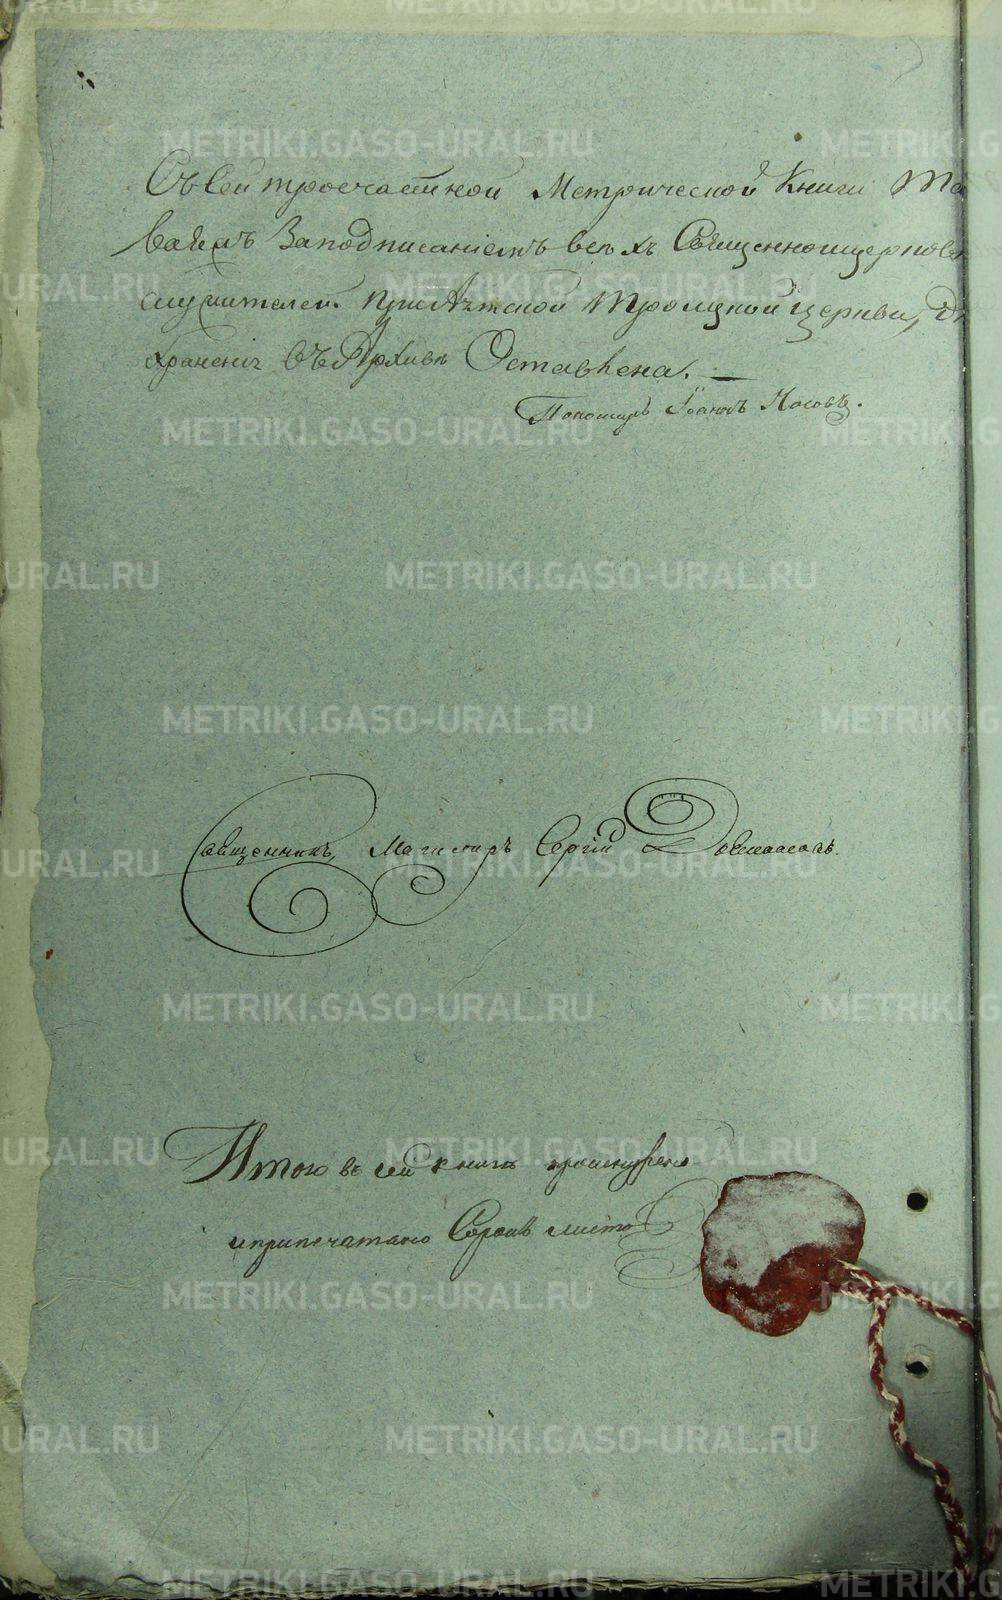 Съ сей троечастной Метрической Книги Та
ваяжъ Заподписаніемъ всѣхъ Священноицерковн
служителей при Троицкой церкви, д
храненія въ Архивѣ Оставлена. —
Пономарь Іоаннъ Носовъ.
Священникъ, Магистръ Сергій
Итого въ сей книгѣ прошнурено
иприпечатано Сорокъ листо
METRIKI.GASO-URAL.RU